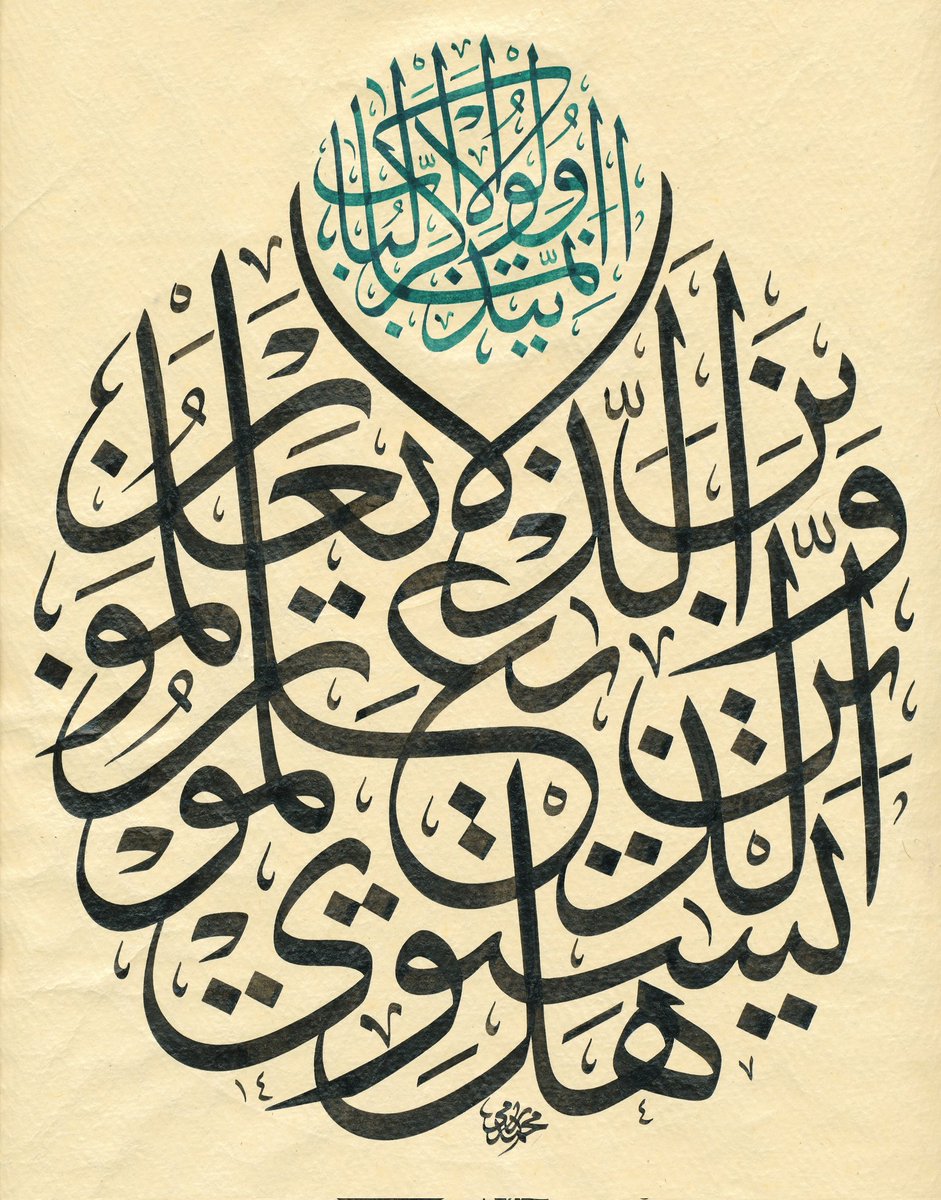 هَلْ يَسْتَوِي الَّذِينَ يَعْلَمُونَ وَالَّذِينَ لَا يَعْلَمُونَ
إِنَّمَا يَتَذَكَّرُ أُولُو الْأَلْبَابِ
١٤ ٤ ٧